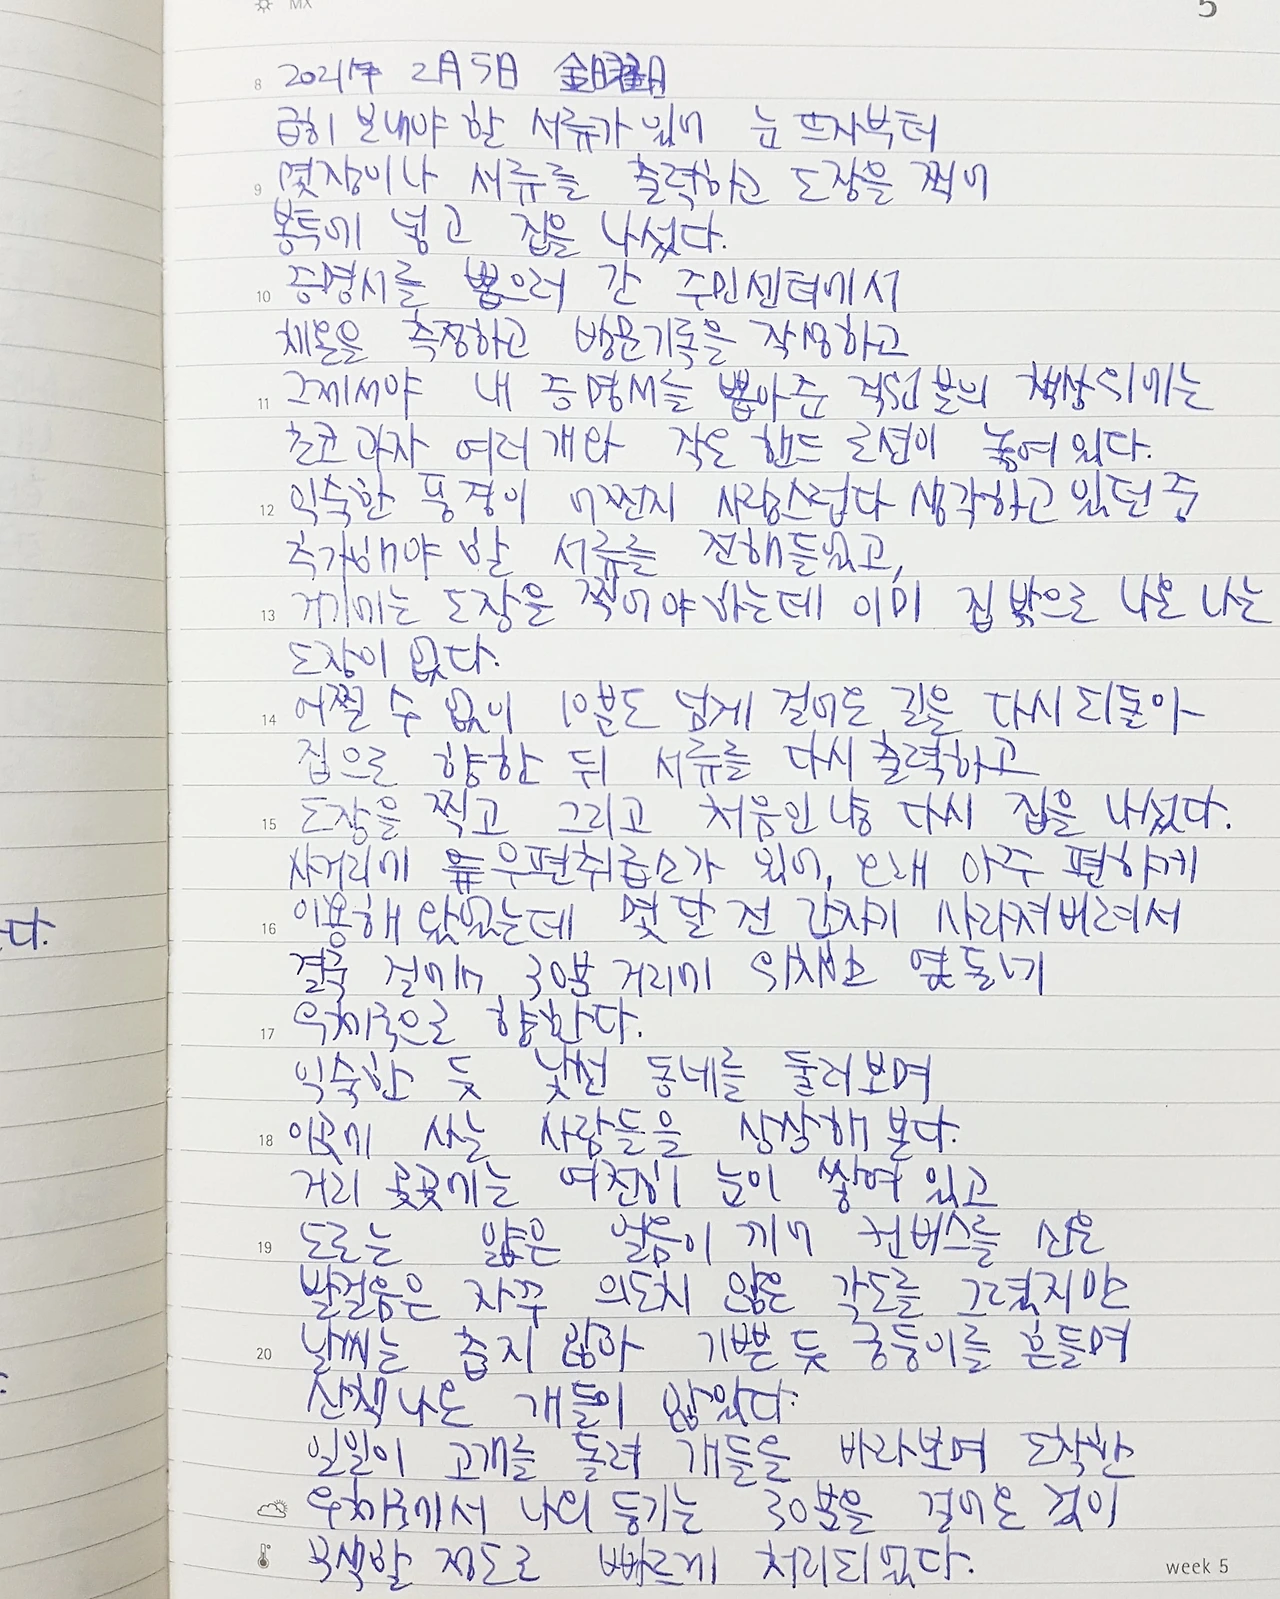 MX 5
8 2021年 2月 5日 金曜日
급히 보내야 할 서류가 있어 눈 뜨자부터
9 몇장이나 서류를 출력하고 도장을 찍어
봉투에 넣고 집을 나섰다.
10 증명서를 뽑으러 간 주민센터에서
체온을 측정하고 방문기록을 작성하고
11 그제서야 내 증명서를 뽑아준 직원분의 책상 위에는
초코과자 여러개와 작은 핸드 로션이 놓여있다.
12 익숙한 풍경이 어쩐지 사랑스럽다 생각하고 있던 중
추가해야 할 서류를 전해들었고,
13 거기에는 도장을 찍어야 하는데 이미 집 밖으로 나온 나는
도장이 없다.
14 어쩔 수 없이 10분도 넘게 걸어온 길을 다시 되돌아
집으로 향한 뒤 서류를 다시 출력하고
15 도장을 찍고 그리고 처음인 냥 다시 집을 나섰다.
사거리에 우편취급소가 있어, 오래 아주 편하게
16 이용해 왔었는데 몇 달 전 갑자기 사라져버려서
결국 걸어서 30분 거리의 우체국으로 향한다.
17 우체국으로 향한다.
익숙한 듯 낯선 동네를 둘러보며
18 이곳에 사는 사람들을 상상해 본다.
거리 곳곳에는 여전히 눈이 쌓여 있고
19 도로는 얇은 얼음이 끼어 컨버스를 신은
발걸음은 자꾸 의도치 않은 각도를 그렸지만
20 날씨는 춥지 않아 기쁜 듯 궁둥이를 흔들며
산책 나온 개들이 많았다.
일일이 고개를 돌려 개들을 바라보며 도착한
우체국에서 나의 등기는 30분을 걸어온 것이
무색할 정도로 빠르게 처리되었다.
week 5
다.